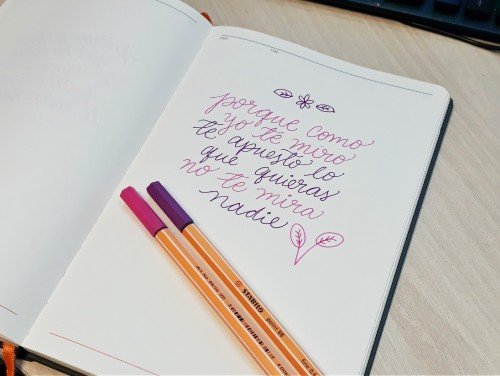 porque como
yo te miro
te apuesto lo
que quieras
no te mira
nadie
STABILO point 88